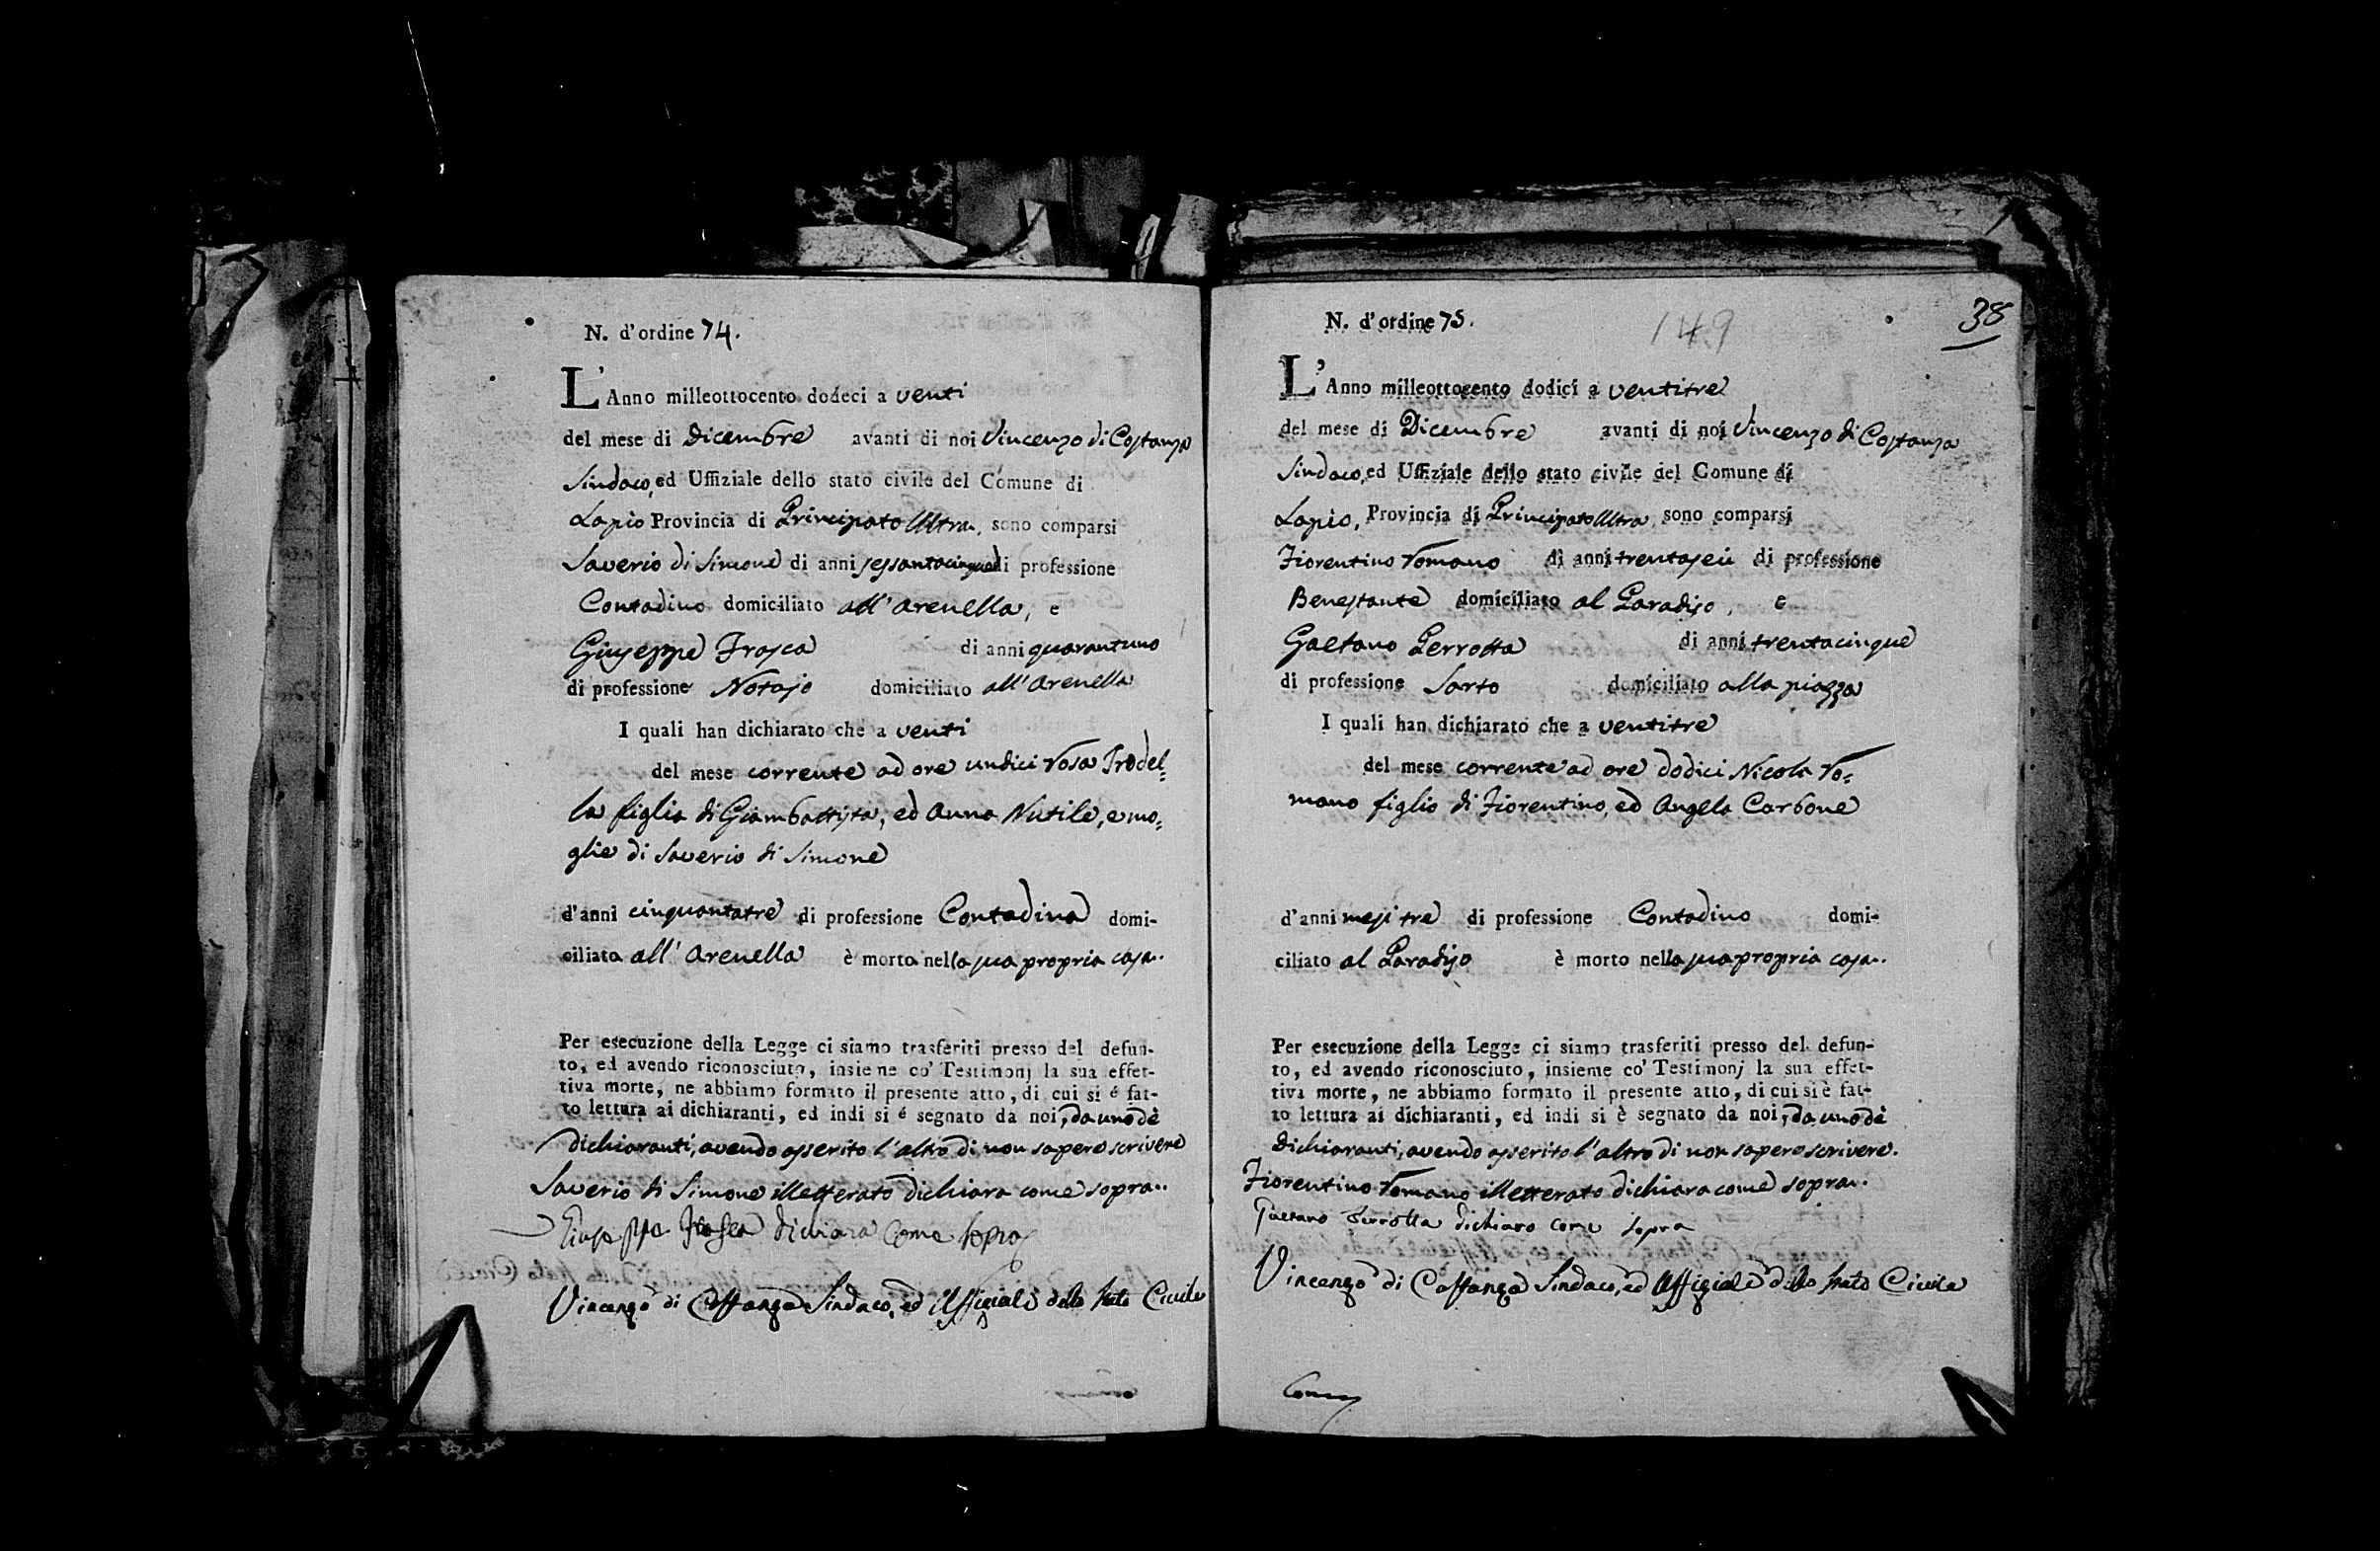 N. d'ordine 74.
L'Anno milleottocento dodeci a venti
del mese di Dicembre avanti di noi Vincenzo di Costanza
Sindaco, ed Uffiziale dello stato civile del Comune di
Lapio Provincia di Principato Ultra, sono comparsi
Saverio di Simone di anni sessantacinque di professione
Contadino domiciliato all'Arenella, e
Giuseppe Frasca di anni quarantuno
di professione Notajo domiciliato all'Arenella
I quali han dichiarato che a venti
del mese corrente ad ore undici Rosa
la figlia di Giambattista, ed Anna Nutile, e mo=
glie di Saverio di Simone
d'anni cinquantatre di professione Contadina domi-
ciliata all'Arenella è morta nella sua propria casa..
Per esecuzione della Legge ci siamo trasferiti presso del defun-
to, ed avendo riconosciuto, insieme co' Testimonj la sua effet-
tiva morte, ne abbiamo formato il presente atto, di cui si é fat-
to lettura ai dichiaranti, ed indi si é segnato da noi, da uno dè
dichiaranti, avendo asserito l'altro di non sapere scrivere
Saverio di Simone illetterato dichiara come sopra..
Giuseppe Frasca dichiara come sopra
Vincenzo di Costanza Sindaco, ed Uffiziale dello Stato Civile
38
149
N. d'ordine 75.
L'Anno milleottocento dodici a ventitre
del mese di Dicembre avanti di noi Vincenzo di Costanza
Sindaco, ed Uffiziale dello stato civile del Comune di
Lapio, Provincia di Principato Ultra sono comparsi
Fiorentino Romano di anni trentasei di professione
Benestante domiciliato al Paradiso, e
Gaetano Perrotta di anni trentacinque
di professione Sarto domiciliato alla piazza
I quali han dichiarato che a ventitre
del mese corrente ad ore dodici Nicola Ro=
mano figlio di Fiorentino, ed Angela Carbone
d'anni mesi tre di professione Contadino domi-
ciliato al Paradiso è morto nella sua propria casa..
Per esecuzione della Legge ci siamo trasferiti presso del defun-
to, ed avendo riconosciuto, insieme co' Testimonj la sua effet-
tiva morte, ne abbiamo formato il presente atto, di cui si è fat-
to lettura ai dichiaranti, ed indi si è segnato da noi, da uno dè
dichiaranti, avendo asserito l'altro di non sapere scrivere.
Fiorentino Romano illetterato dichiara come sopra..
Gaetano Perrotta dichiaro come sopra
Vincenzo di Costanza Sindaco, ed Uffiziale dello Stato Civile